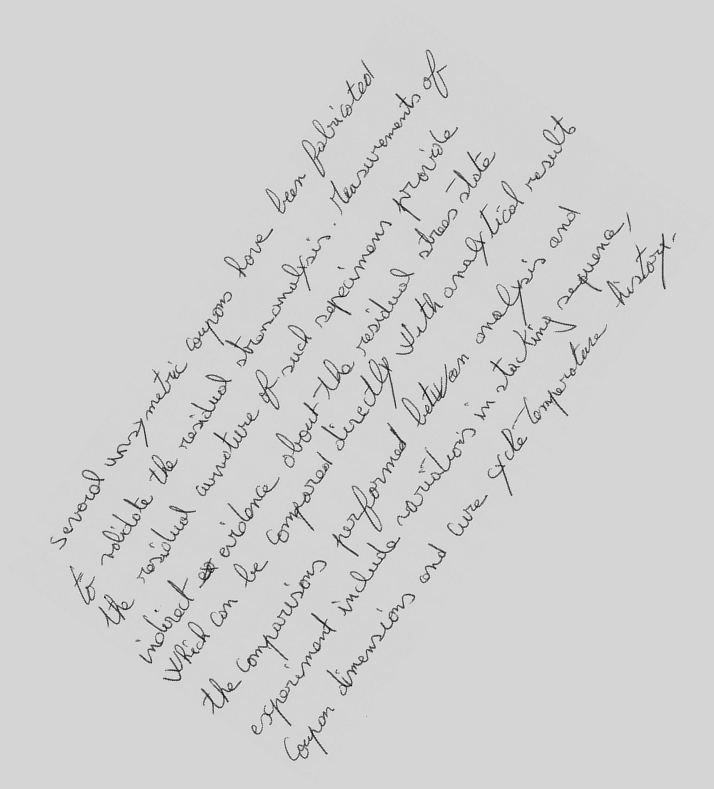 Several unsymetric coupons have been fabricated
to validate the residual stress analysis. Measurements of
the residual curvature of such specimens provide
indirect evidence about the residual stress state
which can be compared directly with analytical results
the comparisons performed between analysis and
experiment include variations in stacking sequence,
Coupon dimensions and cure cycle temperature history.